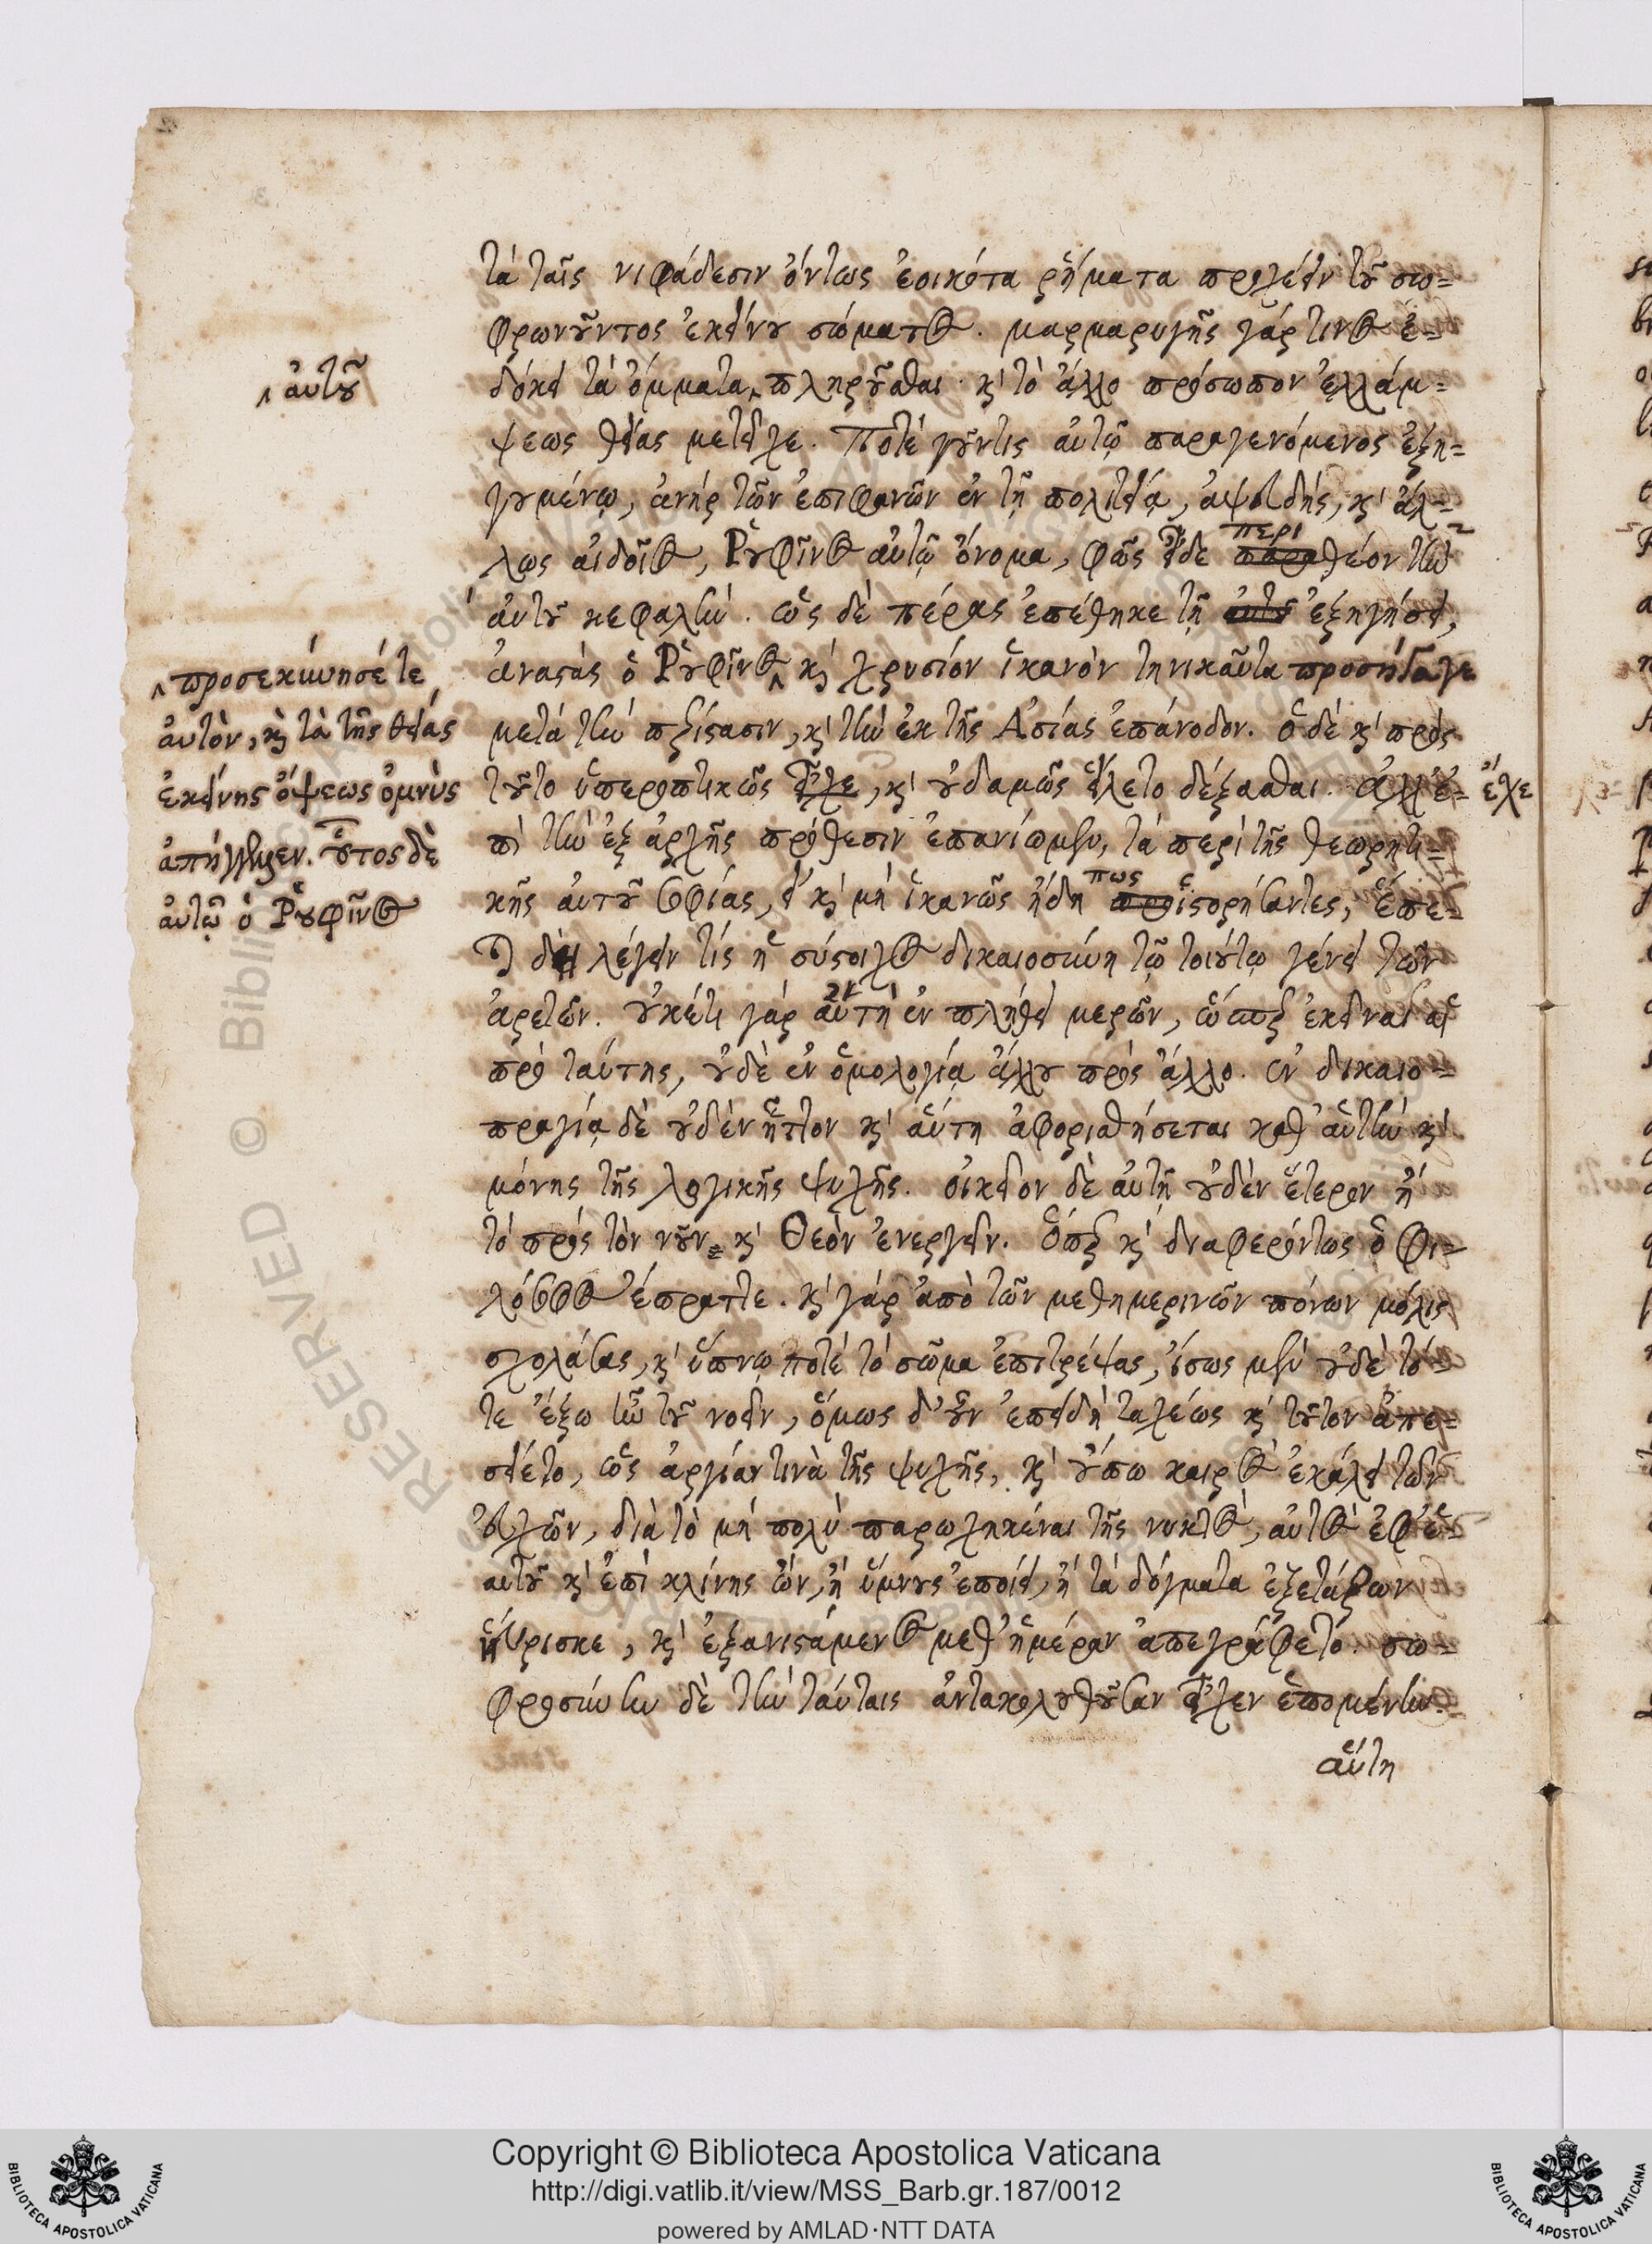 τὰ ταῖς νιφάδεσιν ὄντως ἐοικότα ῥήματα προχέειν τοῦ σω-
φρωνοῦντος ἐκείνου σώματος. μαρμαρυγῆς γάρ τινος ἐ-
δόκει τὰ ὄμματα πληροῦσθαι· καὶ τὸ ἄλλο πρόσωπον ἐλλάμ-
ψεως θείας μετεῖχε. Ποτὲ γοῦν τις αὐτῷ παραγενόμενος ἐξη-
γουμένῳ, ἀνὴρ τῶν ἐπιφανῶν ἐν τῇ πολιτείᾳ, ἀψευδής, καὶ ἄλ-
λως αἰδοῖος, Ῥουφῖνος αὐτῷ ὄνομα, φῶς εἶδε περιθέον τὴν
αὐτοῦ κεφαλήν. ὡς δὲ πέρας ἐπέθηκε τῇ ἐξηγήσει,
ἀναστὰς ὁ Ῥουφῖνος καὶ χρυσίον ἱκανὸν τηνικαῦτα προσήγαγε
μετὰ τὴν περίστασιν, καὶ τὴν ἐκ τῆς Ἀσίας ἐπάνοδον. ὁ δὲ καὶ πρὸς
τοῦτο ὑπεροπτικῶς εἶχε, καὶ οὐδαμῶς εἵλετο δέξασθαι. ἀλλ' ἐ-
πὶ τὴν ἐξ ἀρχῆς πρόθεσιν ἐπανίωμεν, τὰ περὶ τῆς θεωρητι-
κῆς αὐτοῦ σοφίας, εἰ καὶ μὴ ἱκανῶς ἤδη πως ἱστορήσαντες, ἕπε-
ται δὴ λέγειν τίς ἡ σύστοιχος δικαιοσύνη τῷ τοιούτῳ γένει τῶν
ἀρετῶν. οὐκέτι γὰρ αὕτη ἐν πλήθει μερῶν, ὥσπερ ἐκεῖναι αἱ
πρὸ ταύτης, οὐδὲ ἐν ὁμολογίᾳ ἄλλου πρὸς ἄλλο. ἐν δικαιο-
πραγίᾳ δὲ οὐδὲν ἧττον καὶ αὕτη ἀφορισθήσεται καθ' αὑτὴν καὶ
μόνης τῆς λογικῆς ψυχῆς. οἰκεῖον δὲ αὐτῇ οὐδὲν ἕτερον ἢ
τὸ πρὸς τὸν νοῦν καὶ Θεὸν ἐνεργεῖν. ὅπερ καὶ διαφερόντως ὁ φι-
λόσοφος ἔπραττε. καὶ γὰρ ἀπὸ τῶν μεθημερινῶν πόνων μόλις
σχολάσας, καὶ ὕπνῳ ποτὲ τὸ σῶμα ἐπιτρέψας, ἴσως μὲν οὐδὲ τό-
τε ἔξω ἦν τοῦ νοεῖν, ὅμως δ' οὖν ἐπειδὴ ταχέως καὶ τοῦτον ἀπε-
σείετο, ὡς ἀργίαν τινὰ τῆς ψυχῆς, καὶ οὔπω καιρὸς ἐκάλει τῶν
εὐχῶν, διὰ τὸ μὴ πολὺ παρῳχηκέναι τῆς νυκτός, αὐτὸς ἐφ' ἑ-
αυτοῦ καὶ ἐπὶ κλίνης ὤν, ἢ ὕμνους ἐποίει, ἢ τὰ δόγματα ἐξετάζων
ηὕρισκε, καὶ ἐξανιστάμενος μεθ' ἡμέραν ἀπεγράφετο. σω-
φροσύνην δὲ τὴν ταύταις ἀντακολουθοῦσαν εἶχεν ἑπομένην.
αὕτη
αὐτοῦ
προσεκύνησέ τε
αὐτόν, καὶ τὰ τῆς θείας
ἐκείνης ὄψεως ὀμνὺς
ἀπήγγειλεν. οὗτος δὲ
αὐτῷ ὁ Ῥουφῖνος
εἶχε
Copyright © Biblioteca Apostolica Vaticana
http://digi.vatlib.it/view/MSS_Barb.gr.187/0012
powered by AMLAD·NTT DATA
BIBLIOTECA APOSTOLICA VATICANA
BIBLIOTECA APOSTOLICA VATICANA